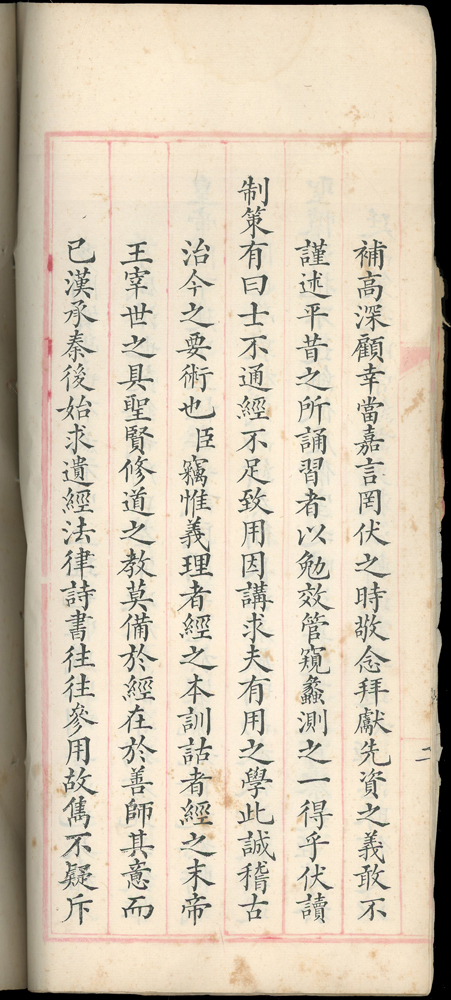 補高深顧幸當嘉言罔伏之時敬念拜獻先資之義敢不
謹述平昔之所誦習者以勉效管窺蠡測之一得乎伏讀
制策有曰士不通經不足致用因講求夫有用之學此誠稽古
治今之要術也臣竊惟義理者經之本訓詁者經之末帝
王宰世之具聖賢修道之教莫備於經在於善師其意而
已漢承秦後始求遺經法律詩書往往參用故雋不疑斥
二